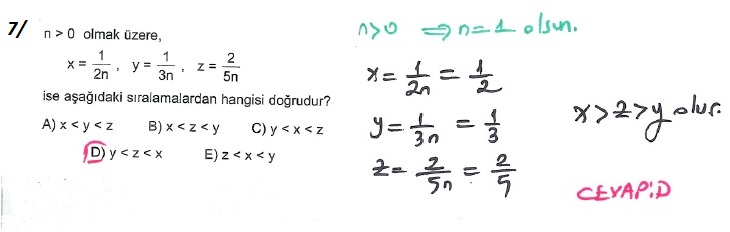 7/
n > 0 olmak üzere,
x = 1/2n , y = 1/3n , z = 2/5n
ise aşağıdaki sıralamalardan hangisi doğrudur?
A) x < y < z B) x < z < y C) y < x < z
D) y < z < x E) z < x < y
n>0 ⇒ n=1 olsun.
x = 1/2n = 1/2
y = 1/3n = 1/3
z = 2/5n = 2/5
x > z > y olur.
CEVAP:D